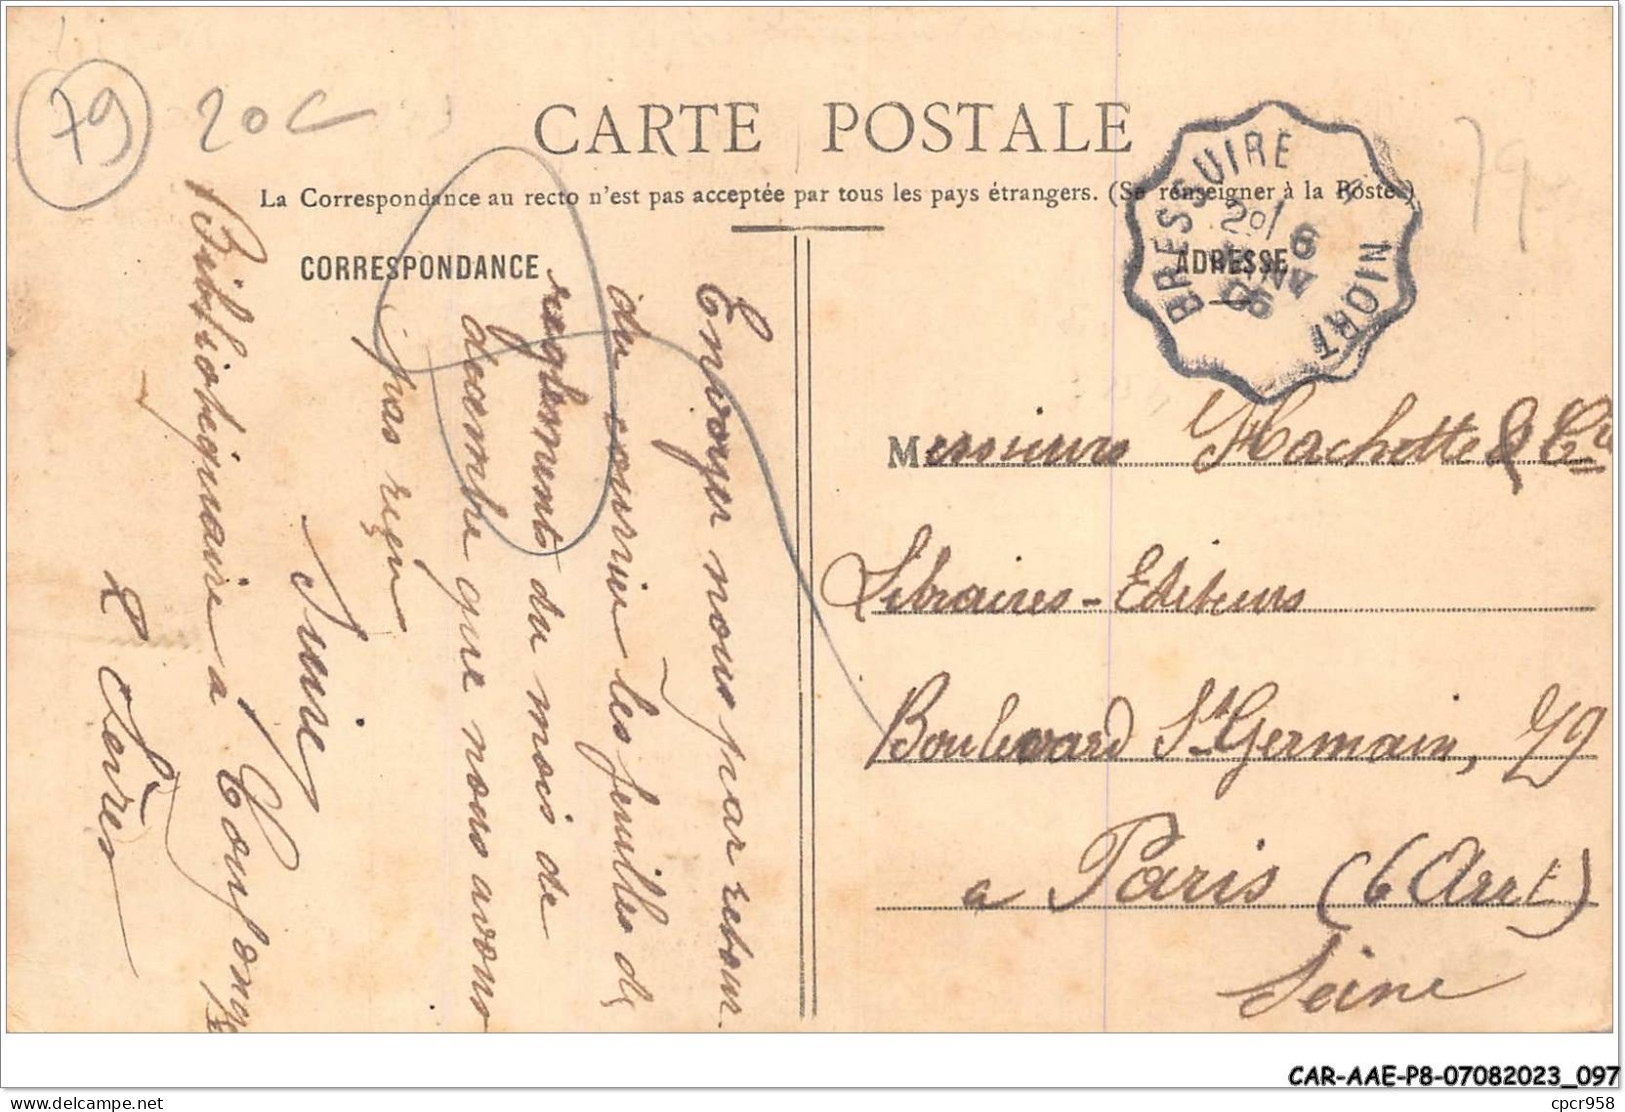 79
20 c
CARTE POSTALE
La Correspondance au recto n'est pas acceptée par tous les pays étrangers. (Se renseigner à la Poste.)
CORRESPONDANCE
ADRESSE
BRESSUIRE A NIORT
79
Envoyer nous par retour
du courrier les feuilles de
reglement du mois de
decembre que nous avons
pas reçu
Bibliotequaire a
2 Sèvres
Messieurs Hachette & Cie
Libraires-Editeurs
Boulevard St Germain, 79
a Paris (6 Arrt)
Seine
CAR-AAE-P8-07082023_097
delcampe.net
cpcr958